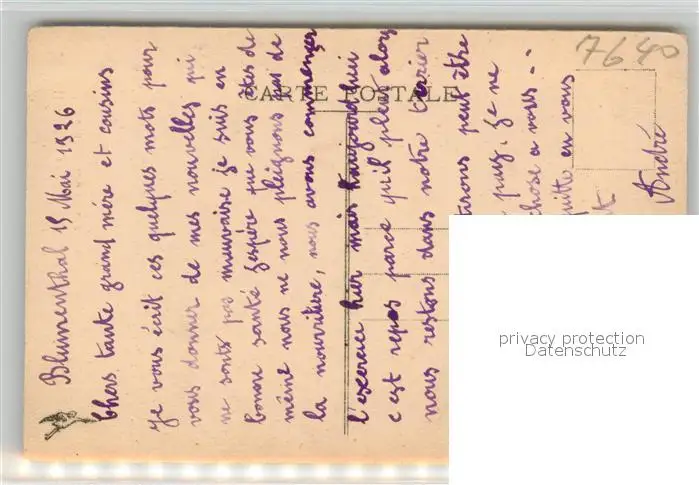 Blumenthal 15 Mai 1926
Chers tante grand mére et cousins
Je vous écrit ces quelques mots pour
vous donner de mes nouvelles qui
ne sonts pas mauvaise je suis en
bonne santé j'espère que vous êtes de
même nous ne nous pleignons pas de
la nourriture, nous avons commencer
l'exercice hier mais haujourd'huei
c est repos parce qu'il pleus alors
nous restons dans notre terier
peut être
puz. Je ne
chose a vous -
quitte en vous
André
CARTE POSTALE
7640
privacy protection
Datenschutz